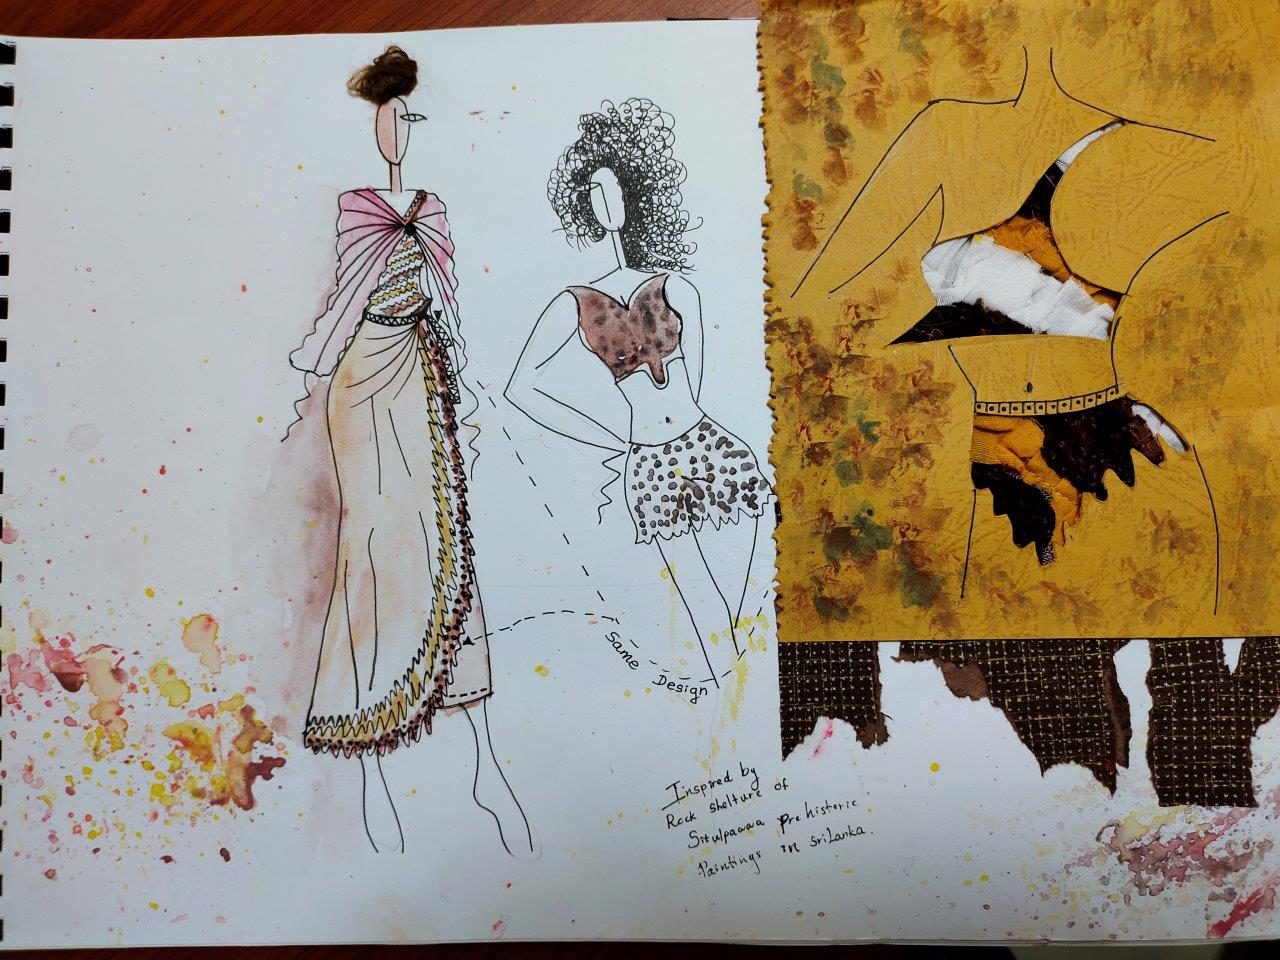 Same
Design
Inspired by
Rock Shelture of
Situlpawwa prehistoric
Paintings in SriLanka.